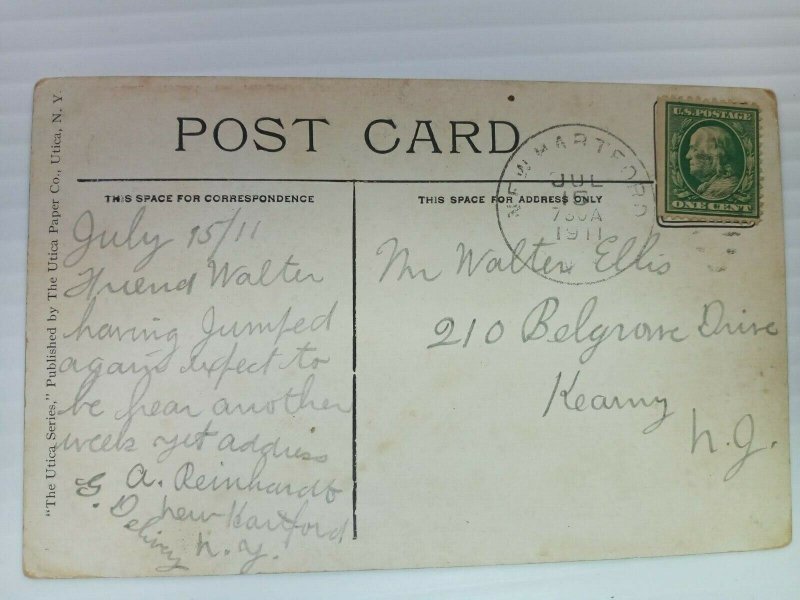 POST CARD
THIS SPACE FOR CORRESPONDENCE
THIS SPACE FOR ADDRESS ONLY
"The Utica Series," Published by The Utica Paper Co., Utica, N. Y.
NEW HARTFORD
JUL
15
730A
1911
U.S. POSTAGE
ONE CENT
July 15/11
Friend Walter
having Jumped
again expect to
be hear another
week yet address
A. Reinhardt
G. Delivry
New Hartford
N. Y.
Mr Walter Ellis
210 Belgrove Drive
Kearny
N. J.